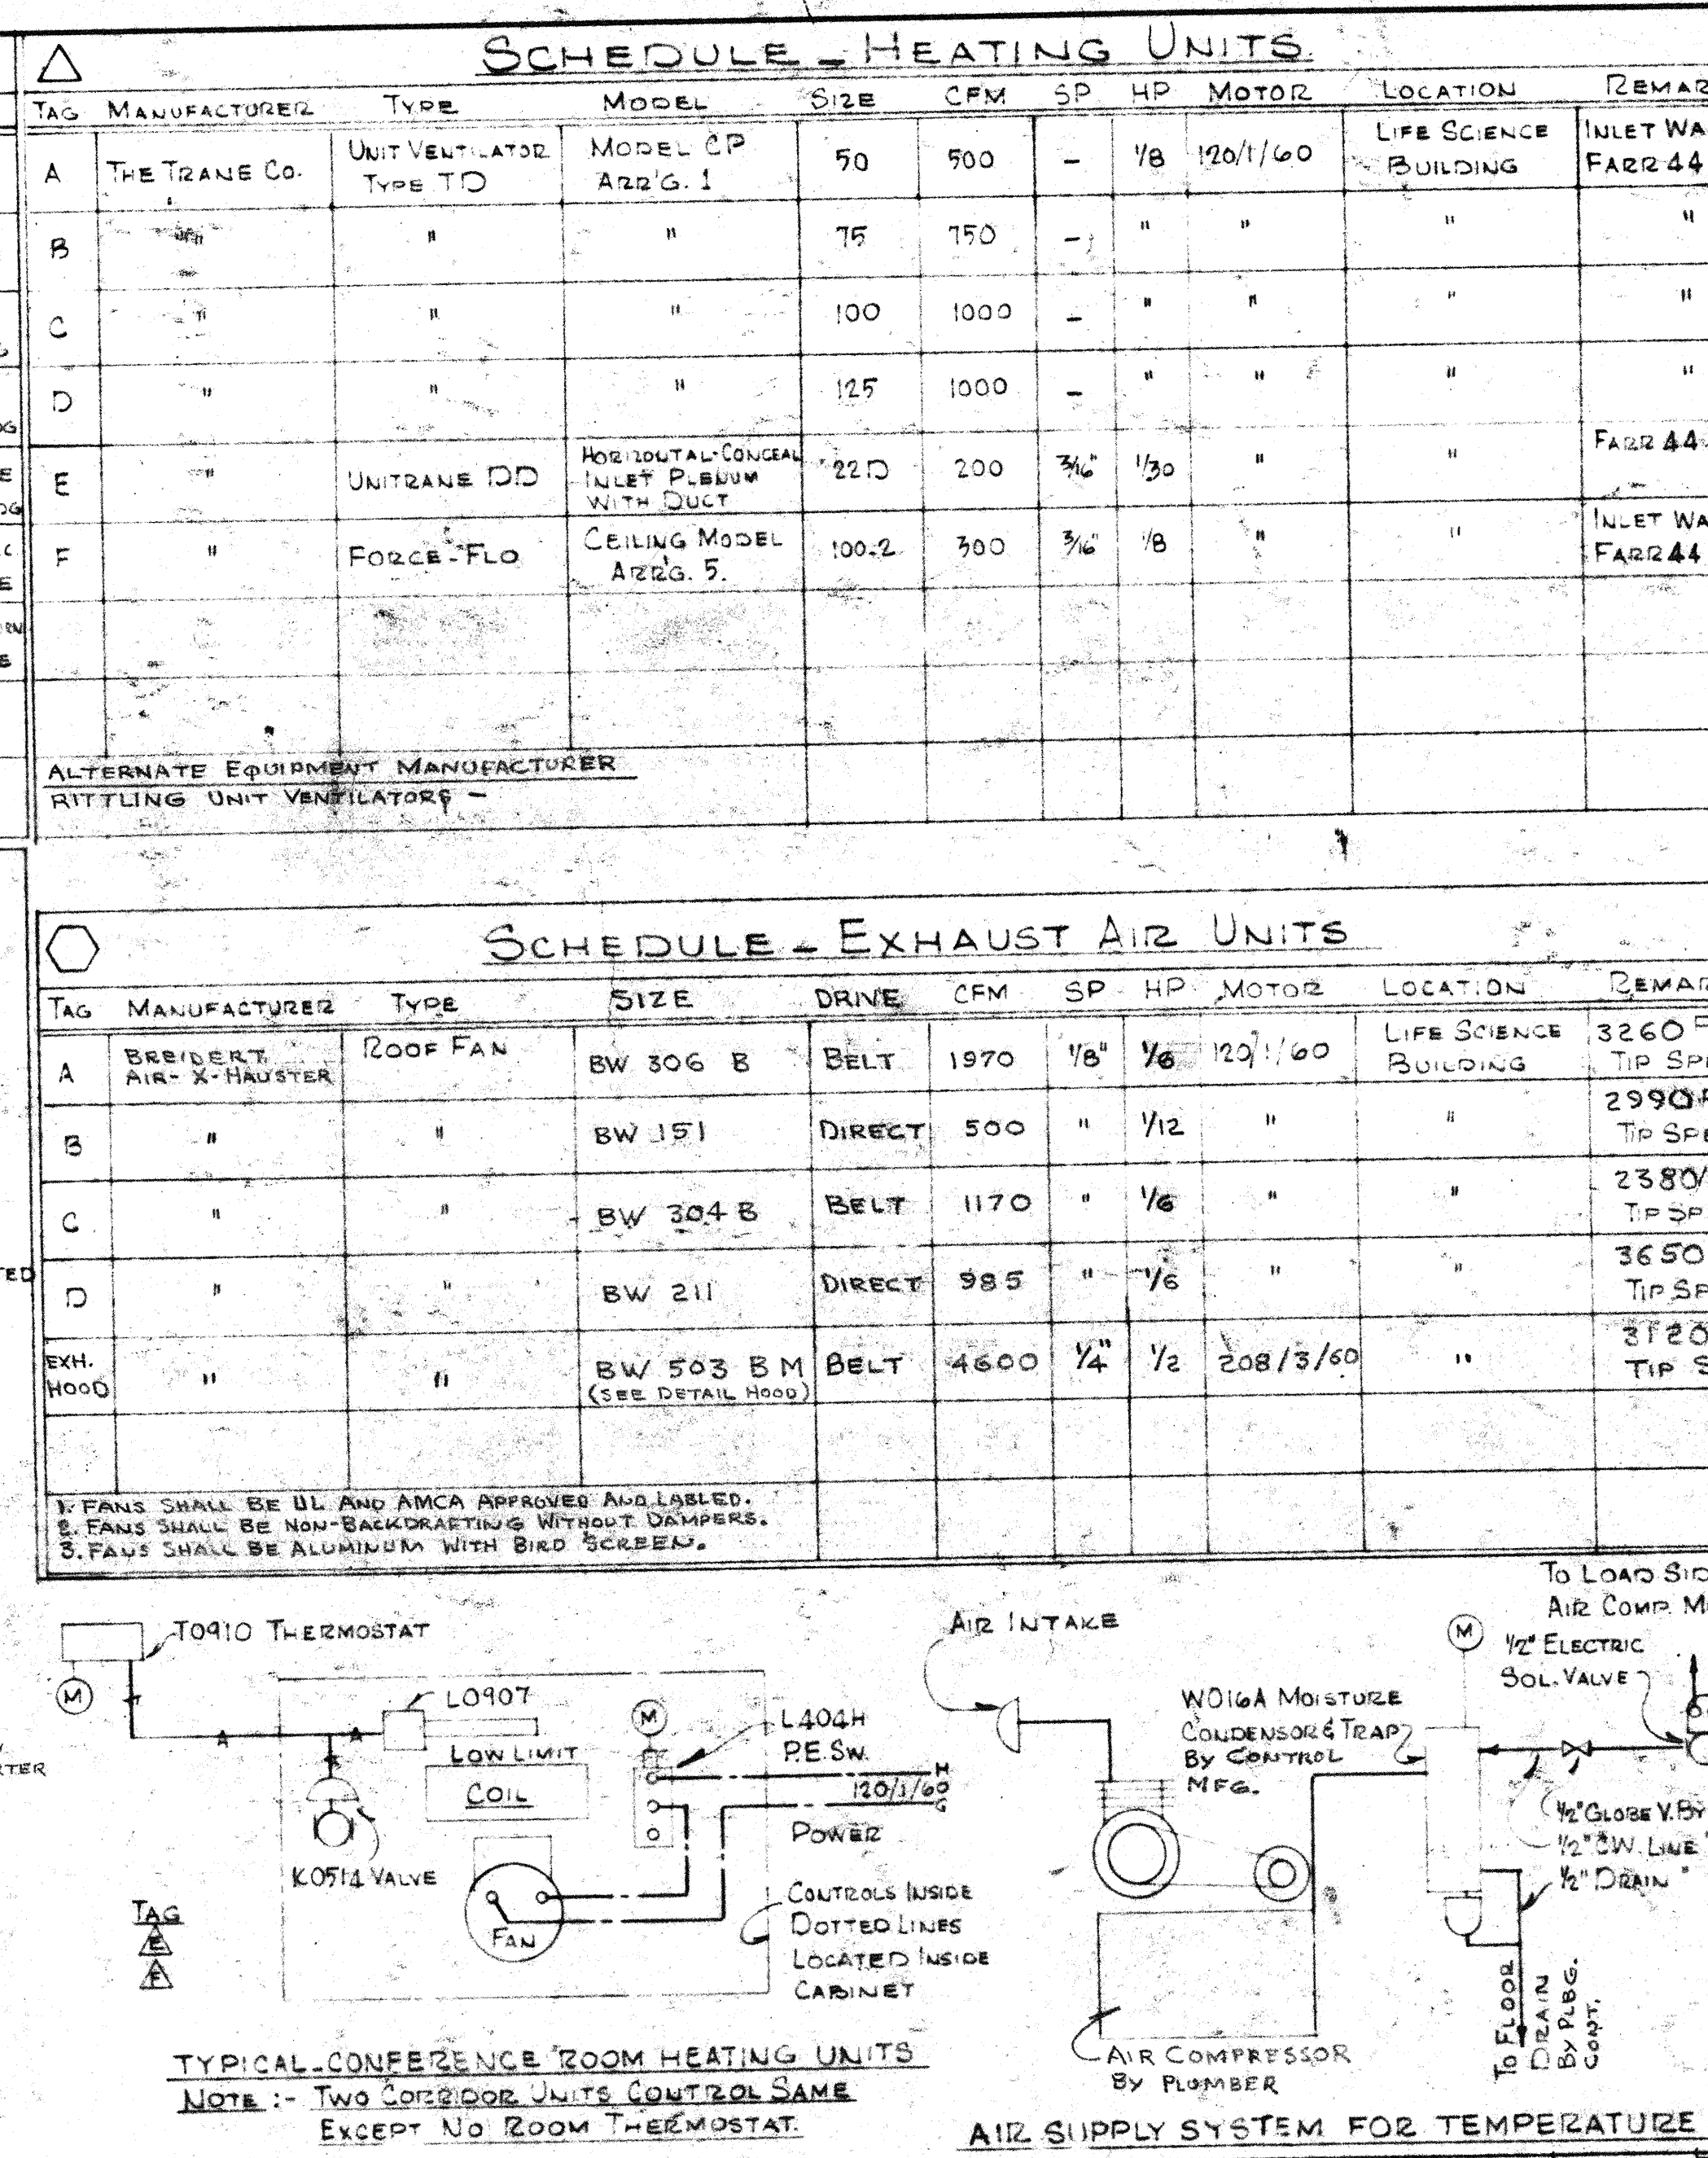 SCHEDULE - HEATING UNITS
TAG MANUFACTURER TYPE MODEL SIZE CFM SP HP MOTOR LOCATION REMAR
A THE TRANE CO. UNIT VENTILATOR TYPE TD MODEL CP ARR'G. 1 50 500 - 1/8 120/1/60 LIFE SCIENCE BUILDING INLET WA FARR 44
B " " " 75 750 - " " " "
C " " " 100 1000 - " " " "
D " " " 125 1000 - " " " "
E " UNITRANE DD HORIZONTAL-CONCEAL INLET PLENUM WITH DUCT 22D 200 3/16" 1/30 " " FARR 44
F " FORCE-FLO CEILING MODEL ARR'G. 5. 100-2 300 3/16" 1/8 " " INLET WA FARR 44
ALTERNATE EQUIPMENT MANUFACTURER
RITTLING UNIT VENTILATORS -
SCHEDULE - EXHAUST AIR UNITS
TAG MANUFACTURER TYPE SIZE DRIVE CFM SP HP MOTOR LOCATION REMAR
A BREIDERT AIR-X-HAUSTER ROOF FAN BW 306 B BELT 1970 1/8" 1/6 120/1/60 LIFE SCIENCE BUILDING 3260 F TIP SPE
B " " BW 151 DIRECT 500 " 1/12 " " 2990 TIP SPE
C " " BW 304 B BELT 1170 " 1/6 " " 2380 TIP SP
D " " BW 211 DIRECT 985 " 1/6 " " 3650 TIP SP
EXH. HOOD " " BW 503 B M (SEE DETAIL HOOD) BELT 4600 1/4" 1/2 208/3/60 " 3120 TIP S
1. FANS SHALL BE UL AND AMCA APPROVED AND LABLED.
2. FANS SHALL BE NON-BACKDRAFTING WITHOUT DAMPERS.
3. FANS SHALL BE ALUMINUM WITH BIRD SCREEN.
T0910 THERMOSTAT
M
A A
L0907
LOW LIMIT
COIL
K0514 VALVE
M
L404H
P.E. SW.
H
120/1/60
G
POWER
FAN
CONTROLS INSIDE
DOTTED LINES
LOCATED INSIDE
CABINET
TAG
E
F
TYPICAL-CONFERENCE ROOM HEATING UNITS
NOTE :- TWO CORRIDOR UNITS CONTROL SAME
EXCEPT NO ROOM THERMOSTAT.
AIR INTAKE
W016A MOISTURE
CONDENSOR & TRAP
BY CONTROL
MFG.
TO LOAD SID
AIR COMP. M
M
1/2" ELECTRIC
SOL. VALVE
1/2" GLOBE V. BY
1/2" CW. LINE "
1/2" DRAIN "
TO FLOOR
DRAIN
BY PLBG.
CONT.
AIR COMPRESSOR
BY PLUMBER
AIR SUPPLY SYSTEM FOR TEMPERATURE